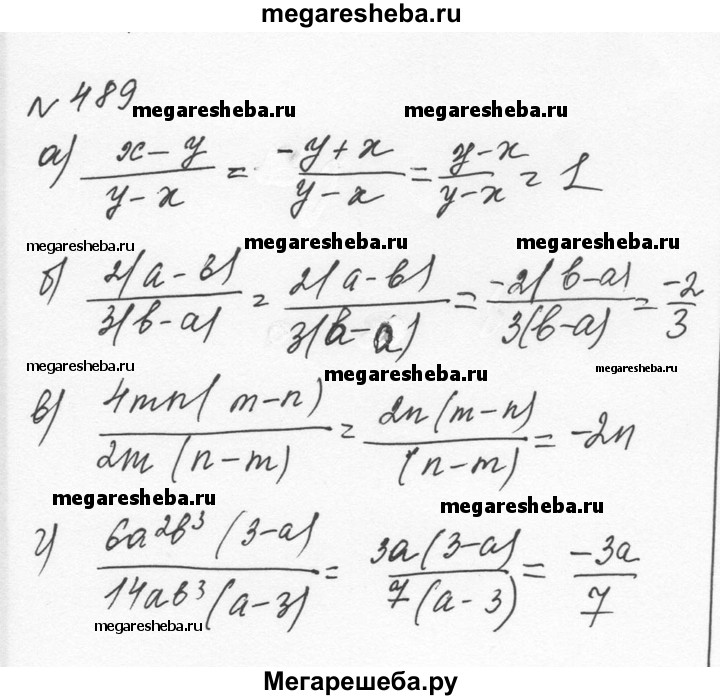 megaresheba.ru
№ 489
megaresheba.ru megaresheba.ru
а) (x - y)/(y - x) = (-y + x)/(y - x) = (y - x)/(y - x) = 1
megaresheba.ru megaresheba.ru megaresheba.ru
б) 2(a - b)/3(b - a) = 2(a - b)/3(b - a) = -2(b - a)/3(b - a) = -2/3
megaresheba.ru megaresheba.ru megaresheba.ru
в) 4mn(m - n)/2m(n - m) = 2n(m - n)/(n - m) = -2n
megaresheba.ru megaresheba.ru
г) 6a²b³(3 - a)/14ab³(a - 3) = 3a(3 - a)/7(a - 3) = -3a/7
megaresheba.ru
Мегарешеба.ру